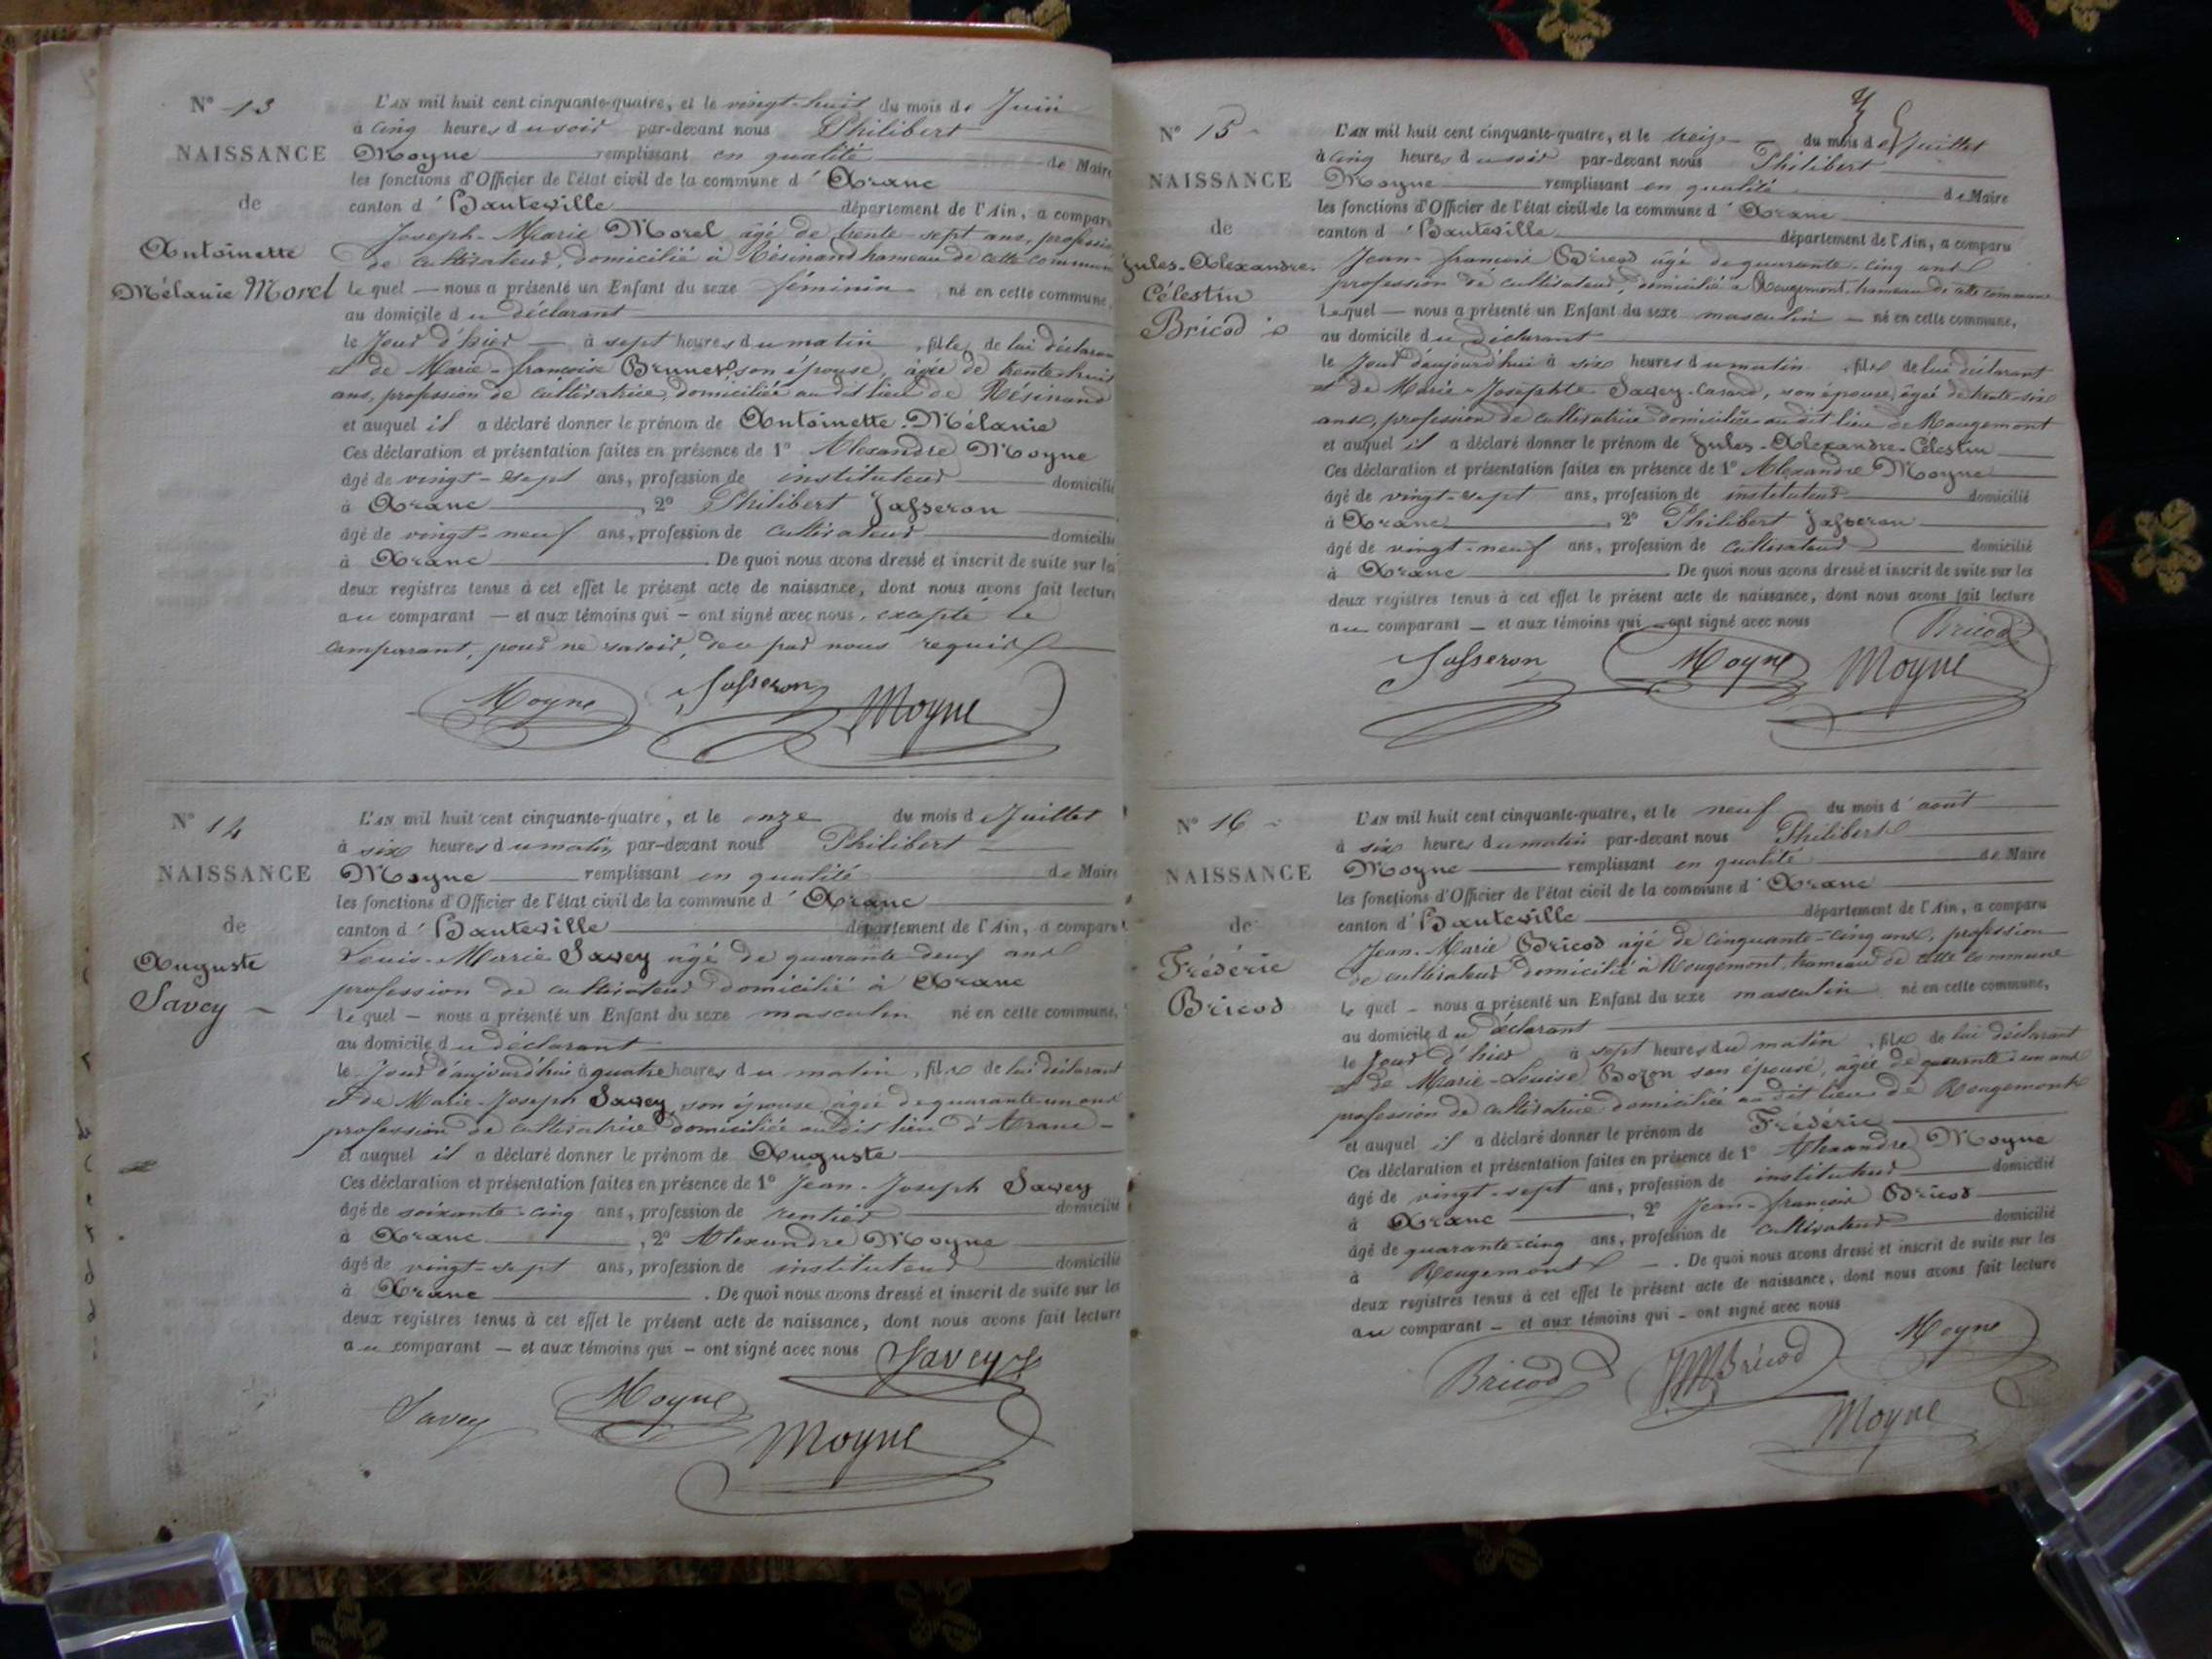 N° 13
NAISSANCE
de
Antoinette
Mélanie Morel
L'AN mil huit cent cinquante-quatre, et le vingt-huit du mois de Juin
à cinq heures du soir par-devant nous Philibert
Moyne remplissant en qualité de Maire
les fonctions d'Officier de l'état civil de la commune d'Aranc
canton d'Hauteville département de l'Ain, a comparu
Joseph-Marie Morel âgé de trente-sept ans, profession
de cultivateur, domicilié à Résinand hameau de cette commune
lequel — nous a présenté un Enfant du sexe féminin né en cette commune,
au domicile du déclarant
le Jour d'hier — à sept heures du matin, fille de lui déclarant
et de Marie-françoise Brunet son épouse, âgée de trente-huit
ans, profession de cultivatrice, domiciliée au dit lieu de Résinand
et auquel il a déclaré donner le prénom de Antoinette-Mélanie
Ces déclaration et présentation faites en présence de 1° Alexandre Moyne
âgé de vingt-sept ans, profession de instituteur domicilié
à Aranc, 2° Philibert Jasseron
âgé de vingt-neuf ans, profession de cultivateur domicilié
à Aranc. De quoi nous avons dressé et inscrit de suite sur les
deux registres tenus à cet effet le présent acte de naissance, dont nous avons fait lecture
au comparant — et aux témoins qui — ont signé avec nous, excepté le
comparant, pour ne savoir, de ce par nous requis
Moyne Jasseron Moyne
N° 14
NAISSANCE
de
Auguste
Savey
L'AN mil huit cent cinquante-quatre, et le onze du mois de Juillet
à six heures du matin par-devant nous Philibert
Moyne remplissant en qualité de Maire
les fonctions d'Officier de l'état civil de la commune d'Aranc
canton d'Hauteville département de l'Ain, a comparu
Louis-Marie Savey âgé de quarante-deux ans
profession de cultivateur domicilié à Aranc
lequel — nous a présenté un Enfant du sexe masculin né en cette commune,
au domicile du déclarant
le Jour d'aujourd'hui à quatre heures du matin, fils de lui déclarant
et de Marie-Joseph Savey, son épouse, âgée de quarante-un ans
profession de cultivatrice domiciliée au dit lieu d'Aranc —
et auquel il a déclaré donner le prénom de Auguste
Ces déclaration et présentation faites en présence de 1° Jean-Joseph Savey
âgé de soixante-cinq ans, profession de rentier domicilié
à Aranc, 2° Alexandre Moyne
âgé de vingt-sept ans, profession de instituteur domicilié
à Aranc. De quoi nous avons dressé et inscrit de suite sur les
deux registres tenus à cet effet le présent acte de naissance, dont nous avons fait lecture
au comparant — et aux témoins qui — ont signé avec nous Savey
Savey Moyne
Moyne
N° 15
NAISSANCE
de
Jules-Alexandre-
Célestin
Bricod
L'AN mil huit cent cinquante-quatre, et le treize du mois de Juillet
à cinq heures du soir par-devant nous Philibert
Moyne remplissant en qualité de Maire
les fonctions d'Officier de l'état civil de la commune d'Aranc
canton d'Hauteville département de l'Ain, a comparu
Jean-françois Bricod âgé de quarante-cinq ans
profession de cultivateur, domicilié à Rougemont hameau de cette commune
Lequel — nous a présenté un Enfant du sexe masculin — né en cette commune,
au domicile du déclarant
le Jour d'aujourd'hui à six heures du matin, fils de lui déclarant
et de Marie-Josephte Savey-Casard, son épouse, âgée de trente-six
ans, profession de cultivatrice domiciliée au dit lieu de Rougemont
et auquel il a déclaré donner le prénom de Jules-Alexandre-Célestin
Ces déclaration et présentation faites en présence de 1° Alexandre Moyne
âgé de vingt-sept ans, profession de instituteur domicilié
à Aranc, 2° Philibert Jasseron
âgé de vingt-neuf ans, profession de cultivateur domicilié
à Aranc. De quoi nous avons dressé et inscrit de suite sur les
deux registres tenus à cet effet le présent acte de naissance, dont nous avons fait lecture
au comparant — et aux témoins qui — ont signé avec nous Bricod
Jasseron Moyne Moyne
N° 16
NAISSANCE
de
Frédéric
Bricod
L'AN mil huit cent cinquante-quatre, et le neuf du mois d'août
à six heures du matin par-devant nous Philibert
Moyne remplissant en qualité de Maire
les fonctions d'Officier de l'état civil de la commune d'Aranc
canton d'Hauteville département de l'Ain, a comparu
Jean-Marie Bricod âgé de cinquante-cinq ans, profession
de cultivateur domicilié à Rougemont, hameau de cette commune
lequel — nous a présenté un Enfant du sexe masculin né en cette commune,
au domicile du déclarant
le Jour d'hier à sept heures du matin, fils de lui déclarant
et de Marie-Louise Bozon son épouse, âgée de quarante-un ans
profession de cultivatrice domiciliée au dit lieu de Rougemont
et auquel il a déclaré donner le prénom de Frédéric
Ces déclaration et présentation faites en présence de 1° Alexandre Moyne
âgé de vingt-sept ans, profession de instituteur domicilié
à Aranc, 2° Jean-françois Bricod
âgé de quarante-cinq ans, profession de cultivateur domicilié
à Rougemont. De quoi nous avons dressé et inscrit de suite sur les
deux registres tenus à cet effet le présent acte de naissance, dont nous avons fait lecture
au comparant — et aux témoins qui — ont signé avec nous
Bricod JMBricod Moyne
Moyne